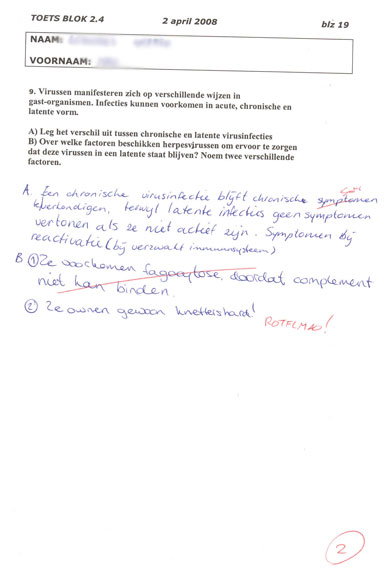 TOETS BLOK 2.4 2 april 2008 blz 19
NAAM:
VOORNAAM:
9. Virussen manifesteren zich op verschillende wijzen in
gast-organismen. Infecties kunnen voorkomen in acute, chronische en
latente vorm.
A) Leg het verschil uit tussen chronische en latente virusinfecties
B) Over welke factoren beschikken herpesvirussen om ervoor te zorgen
dat deze virussen in een latente staat blijven? Noem twee verschillende
factoren.
A. Een chronische virusinfectie blijft chronische symptomen
verkondigen, terwijl latente infecties geen symptomen
vertonen als ze niet actief zijn. Symptomen bij
reactivatie (bij verzwakt immuunsysteem)
B ① Ze voorkomen fagocytose, doordat complement
niet kan binden.
② Ze ownen gewoon knettershard!
ROTFLMAO!
2